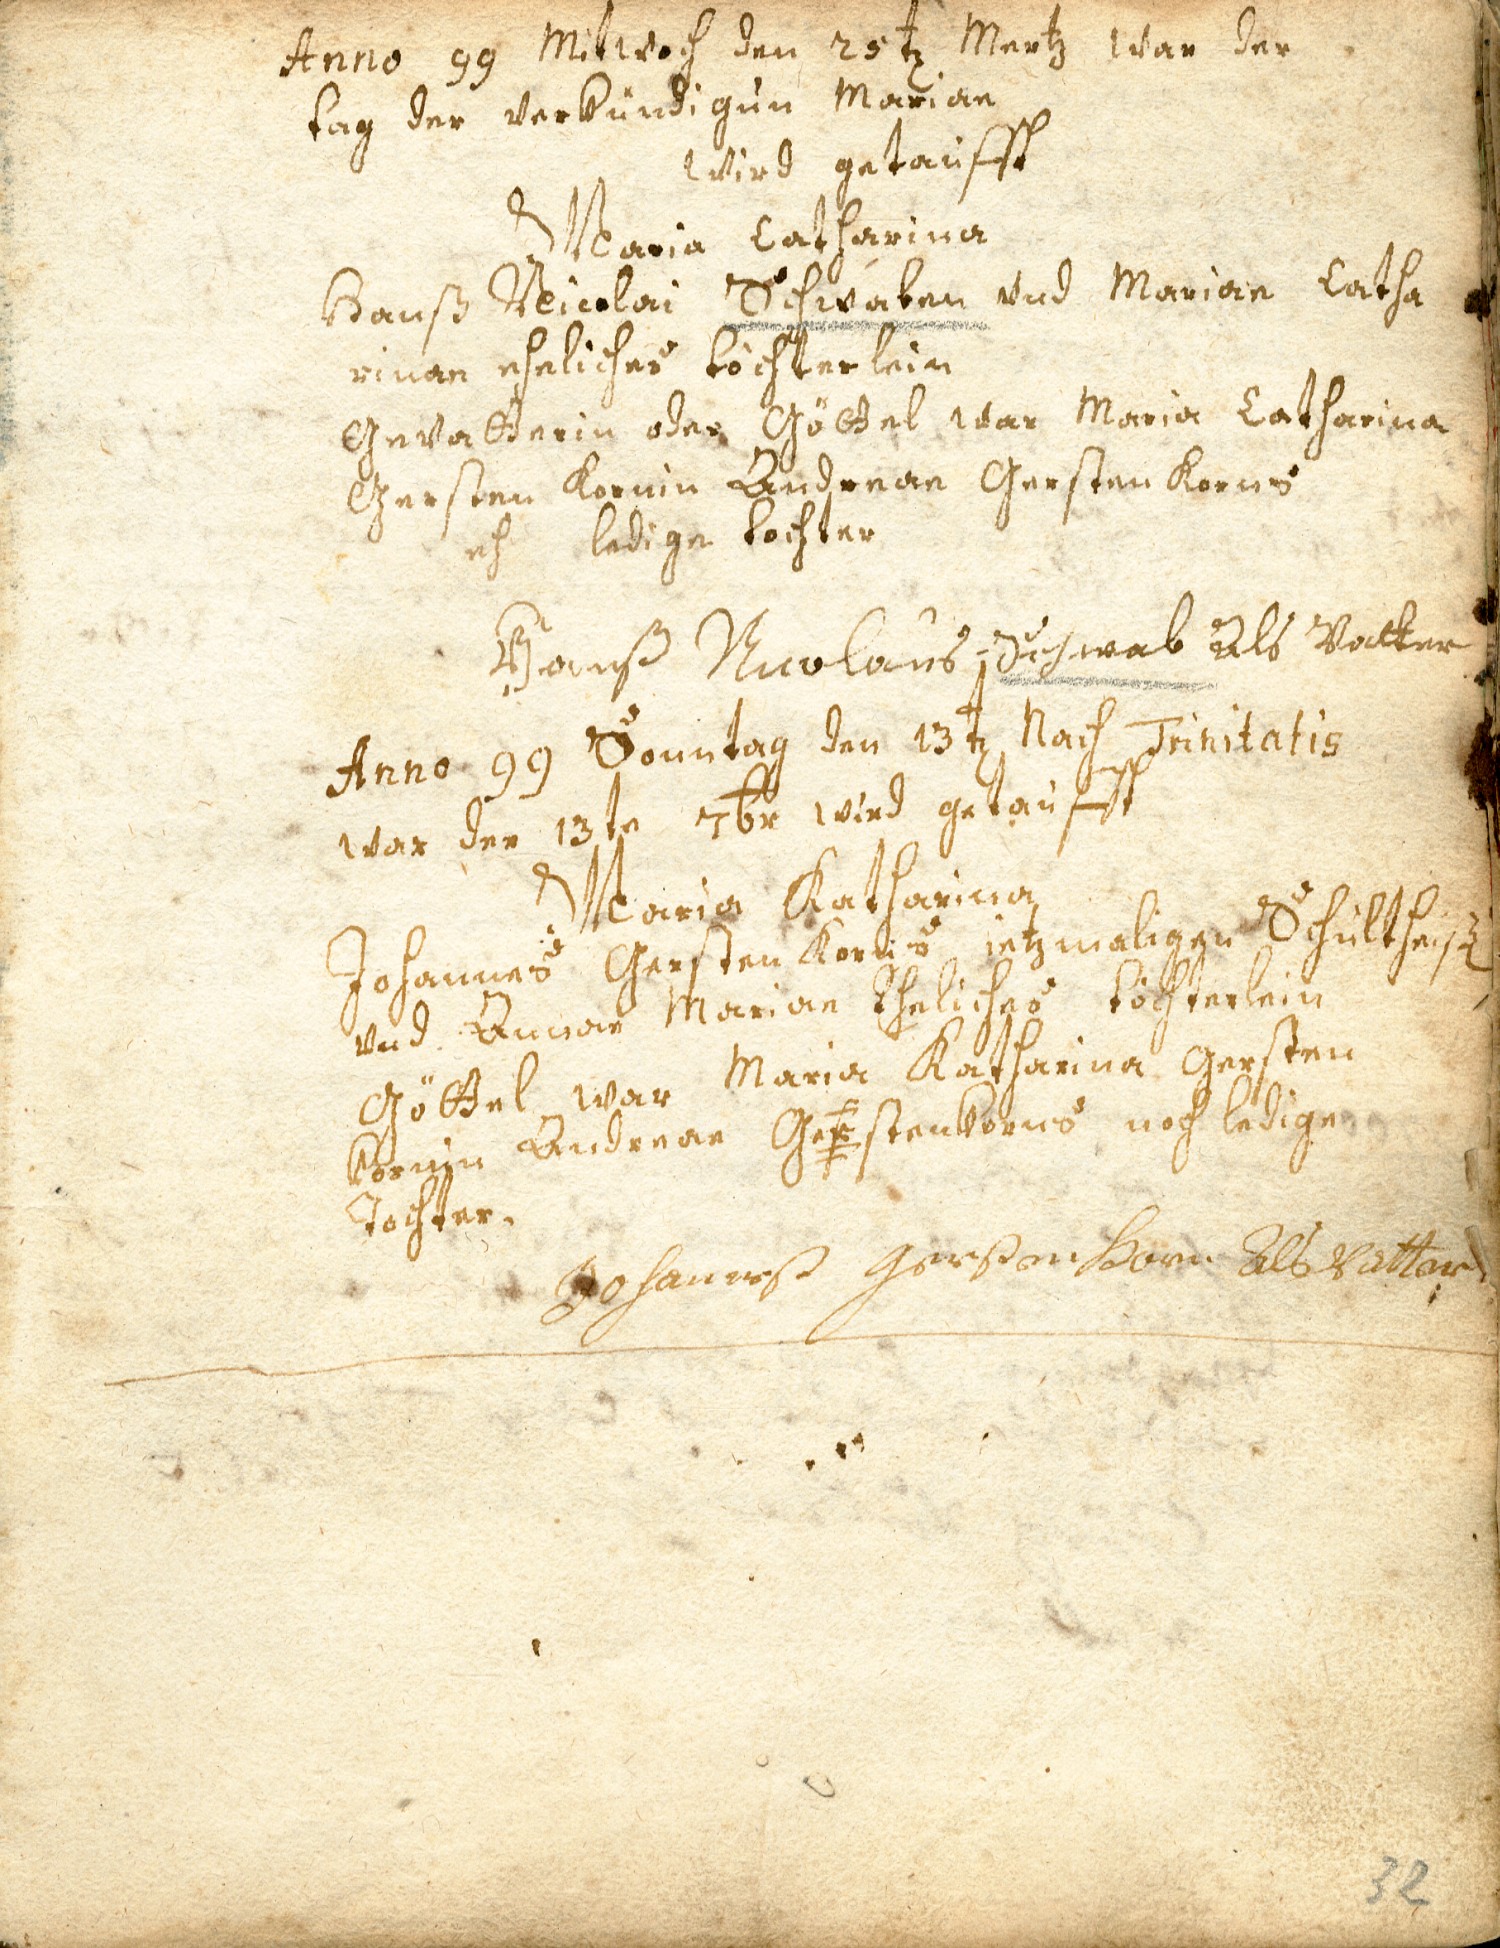 Anno 99 Mitwoch den 25tz Mertz war der
tag der verkündigun Mariae
wird getaufft
Maria Catharina
Hanß Nicolai Schwaben und Mariae Catha
rinae eheliches töchterlein
Gevatterin oder Göttel war Maria Catharina
Gersten Kornin Andreae Gersten Korns
eh ledige tochter
Hanß Nicolaus Schwab Als Vatter
Anno 99 Sonntag den 13tz Nach Trinitatis
war der 13te 7br wird getaufft
Maria Katharina
Johannes Gersten Korns jetzmaligen Schultheiß
und Annae Mariae Eheliches töchterlein
Göttel war Maria Katharina Gersten
kornin Andreae Gerstenkorns noch ledige
Tochter.
Johanneß Gerstenkorn Als Vatter
32